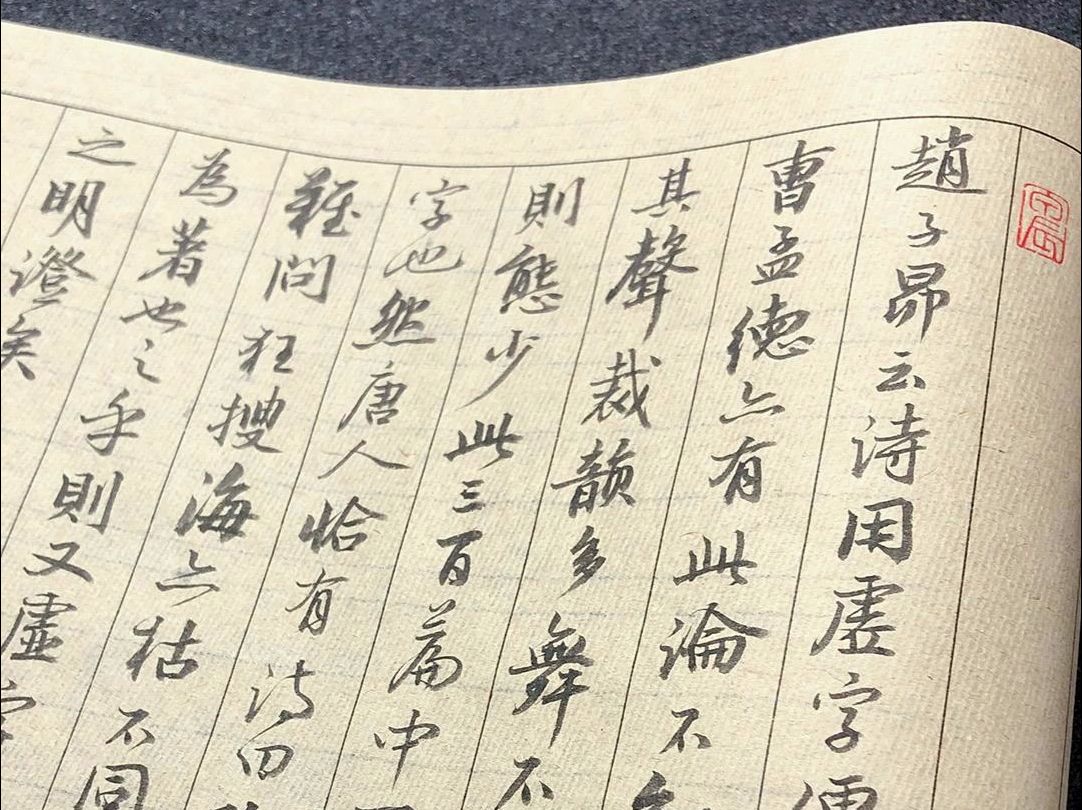 趙子昂云诗用虚字便
曹孟德亦有此論不
其聲裁韻多舞不
則態少此三百篇中
字也然唐人恰有诗四
難問狂搜海亦枯不同
為著也之乎則又虛字
之明證矣